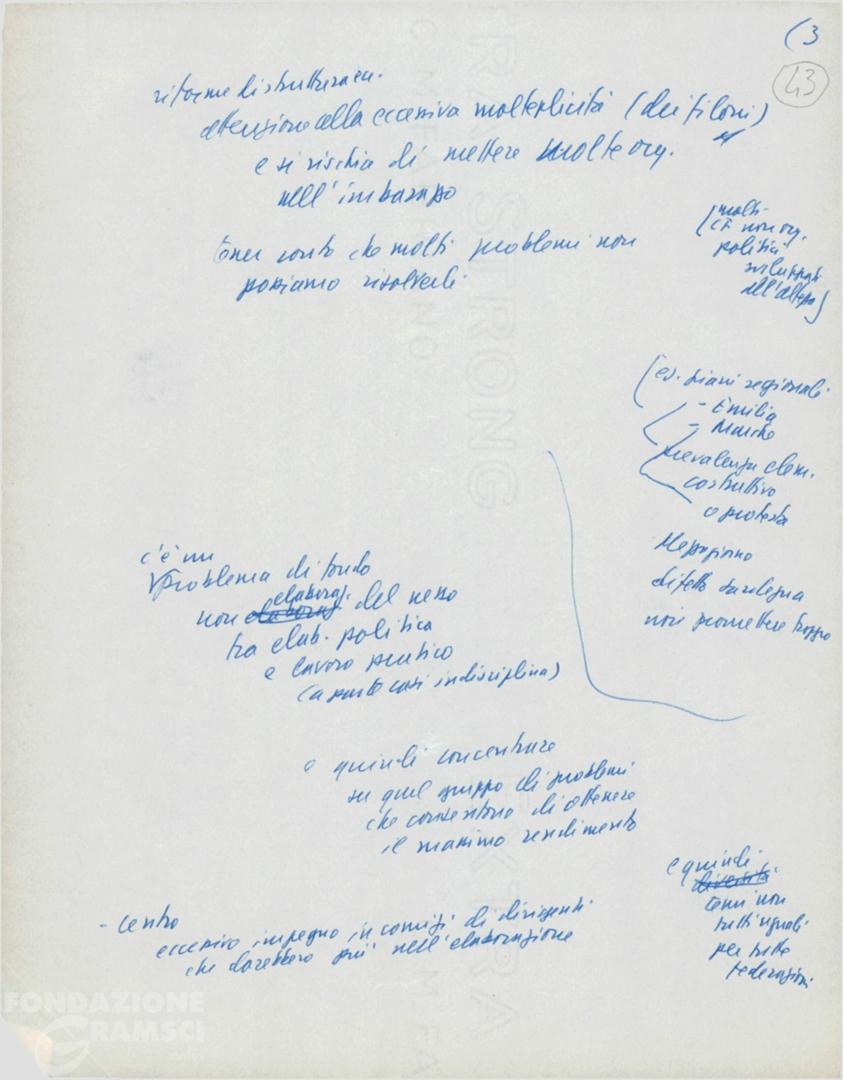 (3
43
riforme di struttura ecc.
attenzione alla eccessiva molteplicità (dei filoni)
e si rischia di mettere molte org.
nell'imbarazzo
tener conto che molti problemi non
possiamo risolverli
(molti
CF non org.
politici
sviluppati
all'altezza)
(es. piani regionali
- Emilia
- Marche
prevalenza elem.
costruttivo
o protesta
Mezzogiorno
difetto Sardegna
non promettere troppo
c'è un
problema di fondo
non elaboraz. del nesso
tra elab. politica
e lavoro pratico
(a parte casi indisciplina)
e quindi concentrare
su quel gruppo di problemi
che consentono di ottenere
il massimo rendimento
e quindi
diversità
temi non
tutti uguali
per tutte
federazioni
- Centro
eccessivo impegno in comizi di dirigenti
che darebbero più nell'elaborazione
FONDAZIONE
GRAMSCI
EXTRA STRONG